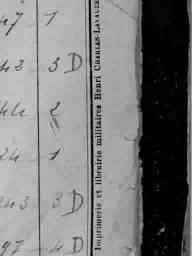 47 1
3 D
2
1
3 D
97 4 D
Imprimerie et librairie militaires Henri CHARLES-LAVAUZE